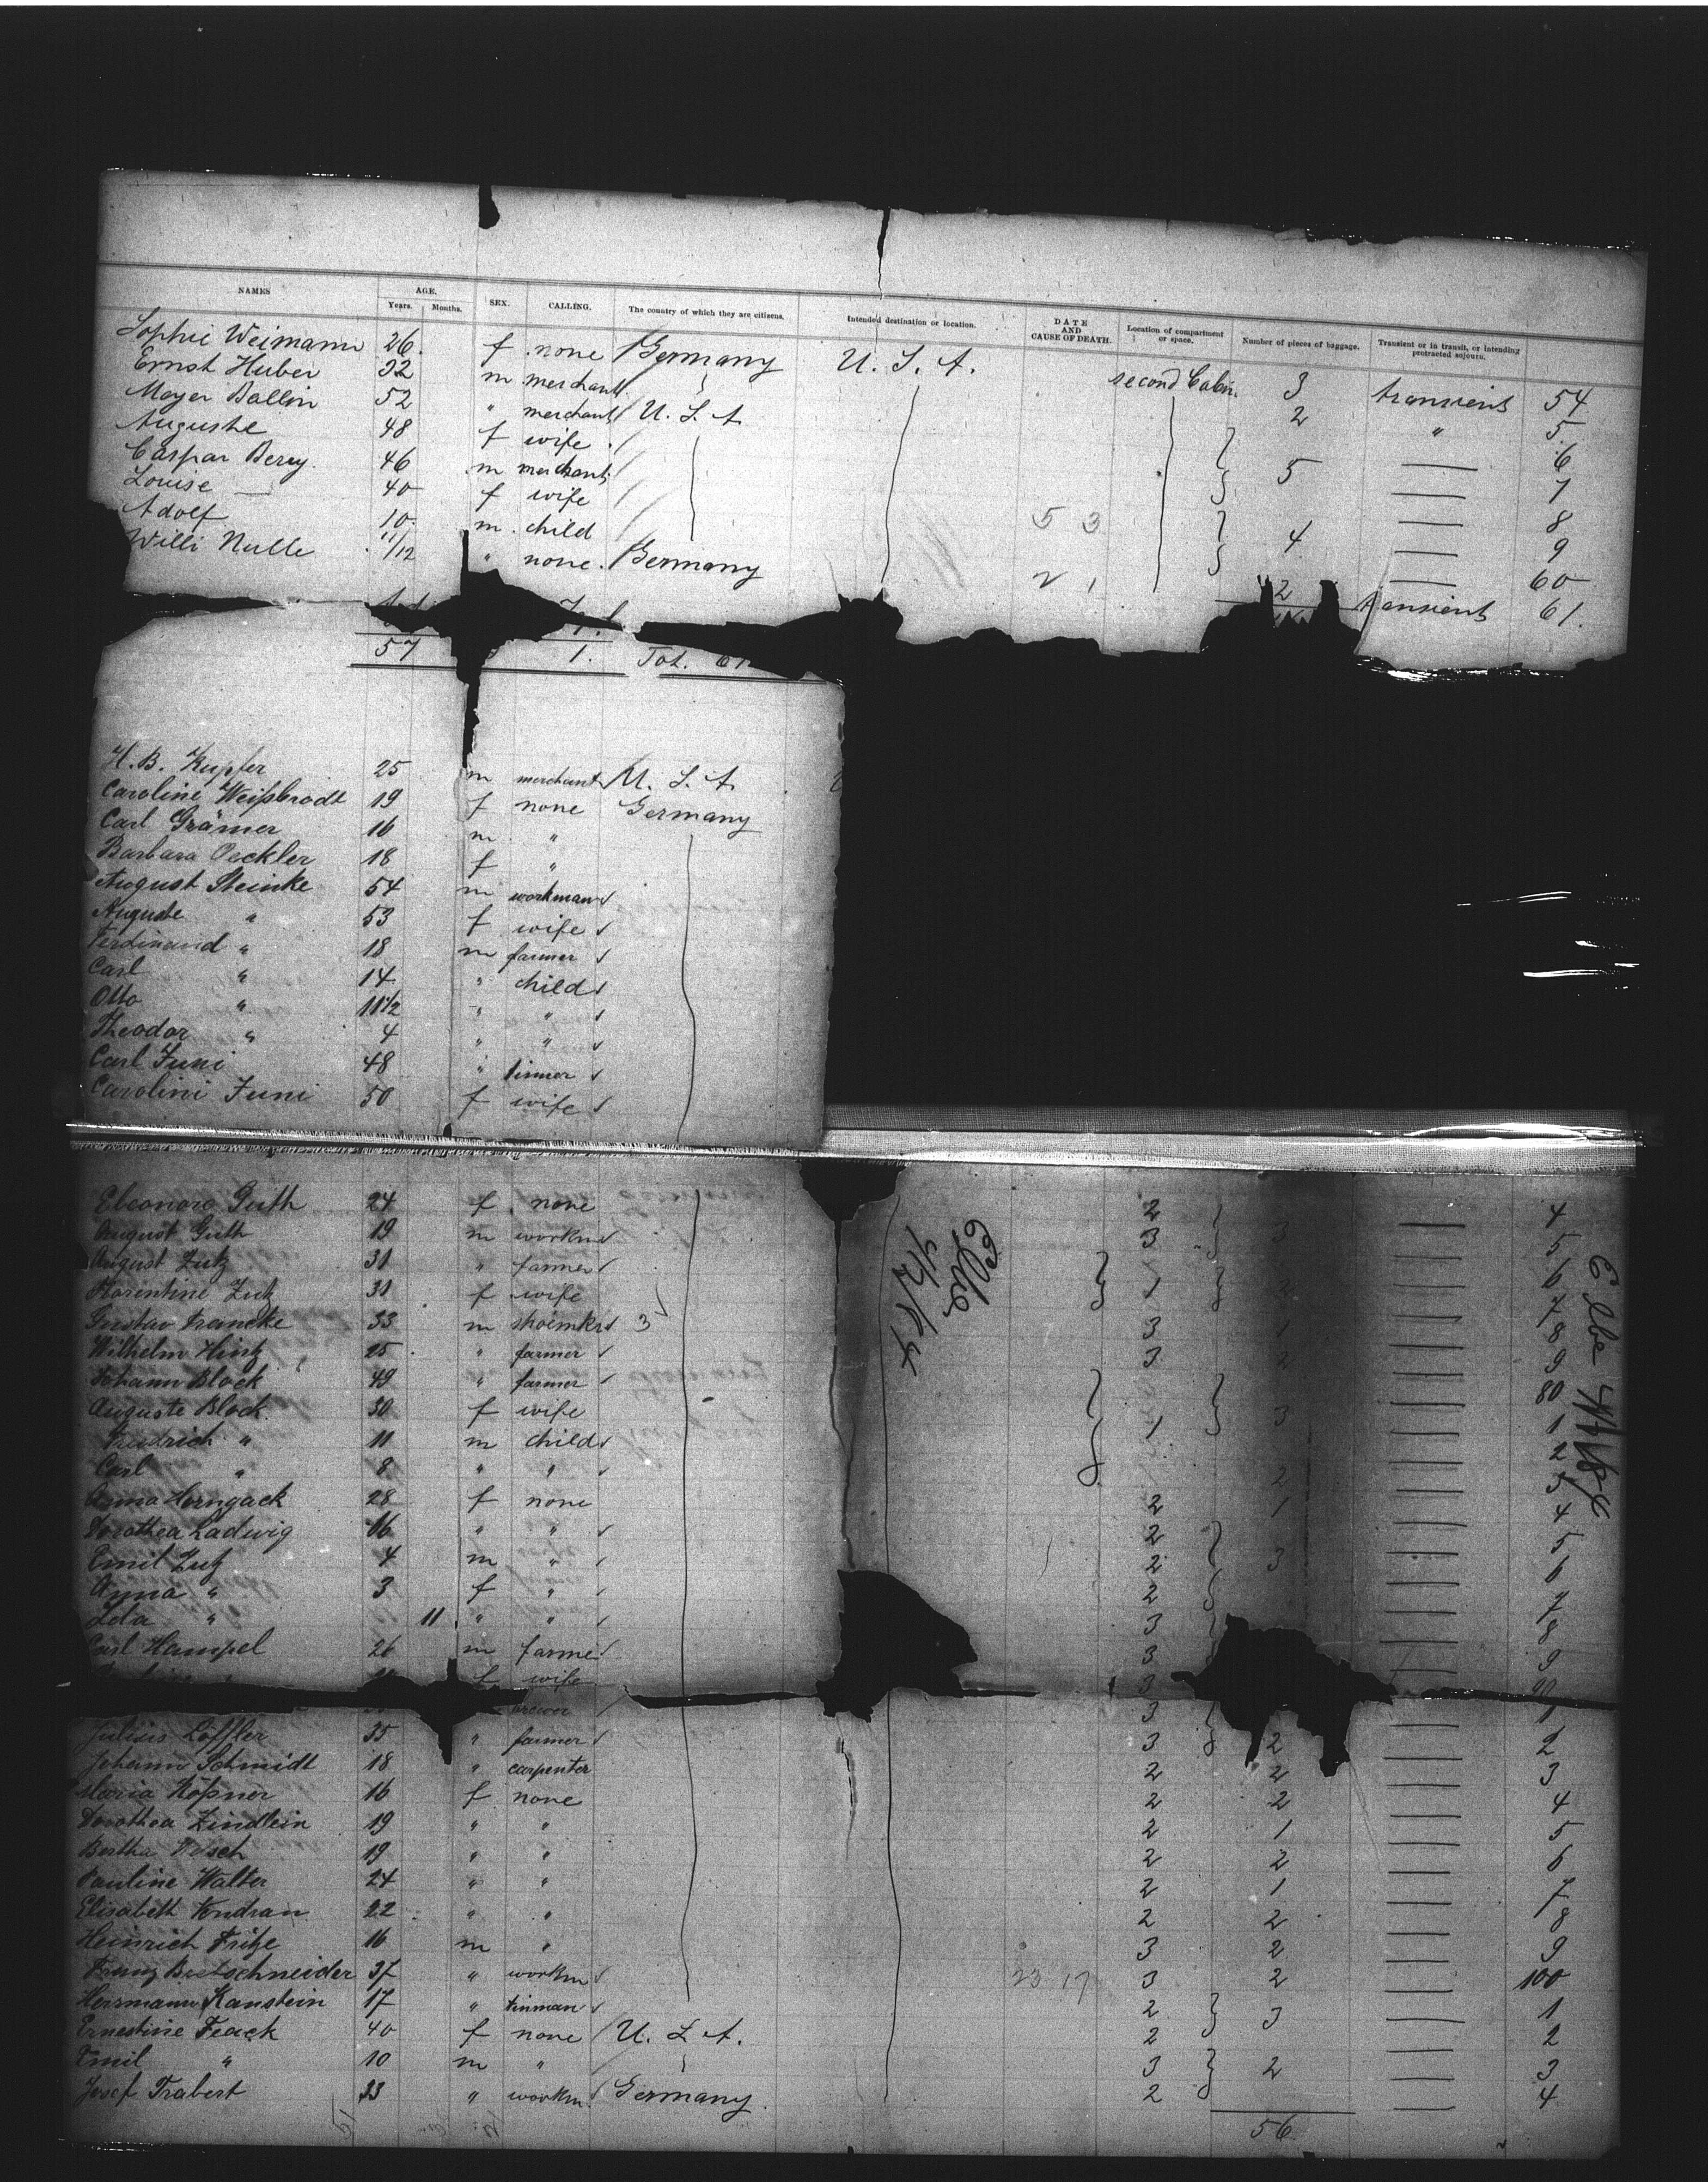 NAMES AGE. Years. Months. SEX. CALLING. The country of which they are citizens. Intended destination or location. DATE AND CAUSE OF DEATH. Location of compartment or space. Number of pieces of baggage. Transient or in transit, or intending protracted sojourn.
Sophie Weimann 26 f none Germany U. S. A. second Cabin 3 transient 54
Ernst Huber 32 m merchant 2 " 5
Mayer Ballin 52 " merchant U. S. A. 6
Auguste 48 f wife 5 7
Caspar Berey 46 m merchant 8
Louise 40 f wife 4 9
Adolf 10 m child 5 3 60
Willi Nulle 11/12 " none Germany 2 1 2 transient 61.
57 1. Tot. 61
H. B. Kupfer 25 m merchant U. S. A.
Caroline Weißbrodt 19 f none Germany
Carl Grämer 16 m "
Barbara Oeckler 18 f "
August Steinke 54 m workman
Auguste " 53 f wife
Ferdinand " 18 m farmer
Carl " 14 " child
Otto " 11 1/2 " "
Theodor " 4 " "
Carl Juni 48 " tinner
Carolini Juni 50 f wife
Eleonore Guth 24 f none 2 4
August Guth 19 m workm 3 3 5
August Zutz 31 " farmer 6
Florentine Zutz 31 f wife 1 2 7
Gustav Francke 33 m shoemkr 3 3 1 8
Wilhelm Hintz 25 " farmer 3 2 9
Johann Block 49 " farmer 80
Auguste Block 30 f wife 1 3 1
Friedrich " 11 m child 2
Carl " 8 " " 2 3
Anna Horngack 28 f none 2 1 4
Dorothea Ladwig 16 " " 2 5
Emil Zutz 4 m " 2 3 6
Anna " 3 f " 2 7
Ida " 11 " " 3 8
Carl Hampel 26 m farmer 3 9
f wife 3 90
brewer 3 1
Julius Löffler 35 " farmer 3 2 2
Johann Schmidt 18 " carpenter 2 2 3
Maria Kößner 16 f none 2 2 4
Dorothea Zindlein 19 " " 2 1 5
Bertha 19 " " 2 2 6
Pauline Walter 24 " " 2 1 7
Elisabeth Vondran 22 " " 2 2 8
Heinrich Fritze 16 m " 3 2 9
Franz Bretschneider 37 " workm 23 17 3 2 100
Herrmann Kanstein 17 " tinman 2 3 1
Ernestine Feack 40 f none U. S. A. 2 2
Emil " 10 m " 3 2 3
Josef Trabert 33 " workm Germany 2 4
56
Elbe
4/2 84
Elbe